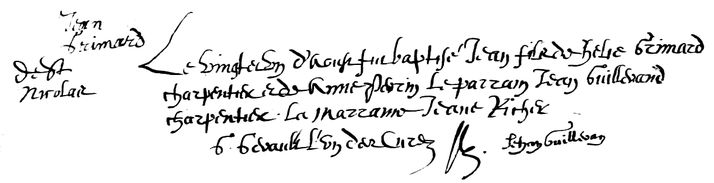 Jean
Grimard
de St
Nicolas
Le vingt et un d'Aoust fut baptisé Jean fils de Helie Grimard
charpentier et de Anne Perin Le parrain Jean Guillevand
charpentier. La marraine Jeane Richer
G. Gevault l'un des Curez
Jehan Guillevan